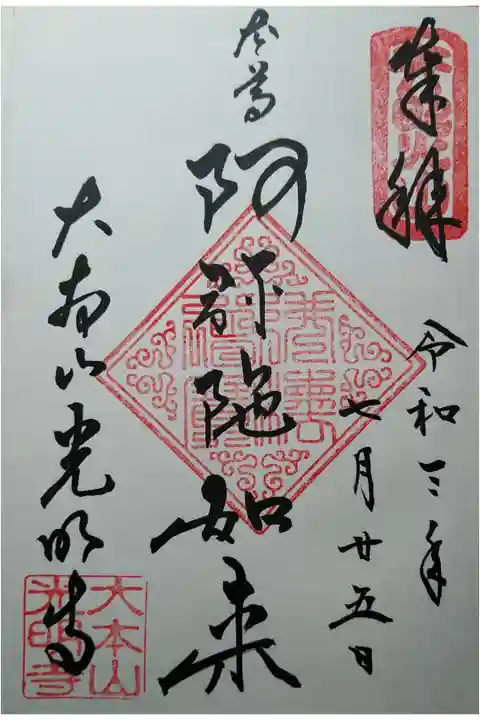 奉拝
令和三年
七月廿五日
本尊
阿弥陀如来
大本山光明寺
大本山
光明寺